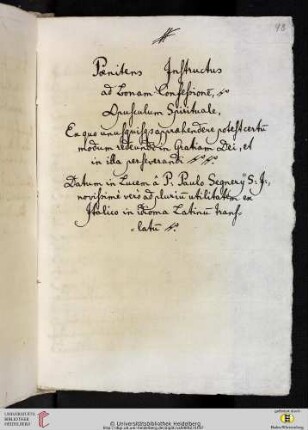 43
Pœnitens Instructus
ad bonam Confessionē, &c
Opusculum Spirituale,
Ex quo unusquisq; apprahendere potest certū
modum redeundi in Gratiam Dei, et
in illa perseverandi &c &c.
Datum in Lucem â P. Paulo Segnerÿ S: J:,
novissimè verò ad plurium utilitatem ex
Italico in idioma Latinū trans-
-latū &c.
UNIVERSITÄTS-
BIBLIOTHEK
HEIDELBERG
© Universitätsbibliothek Heidelberg